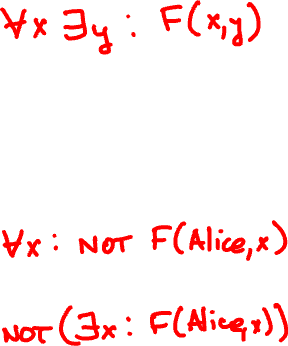 ∀x ∃y : F(x,y)
∀x : NOT F(Alice,x)
NOT (∃x : F(Alice,x))